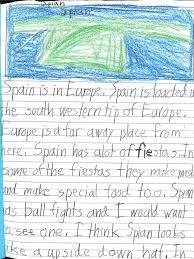 Spian
Spian
Spain is in Europe. Spain is loacted in
the south western tip of Europe.
Europe is a far away place from
here. Spain has alot of fiestas. In
some of the fiestas they make
and make special food too. Spain
has ball fights and I would want
to see one. I think Spian looks
like a upside down hat. In